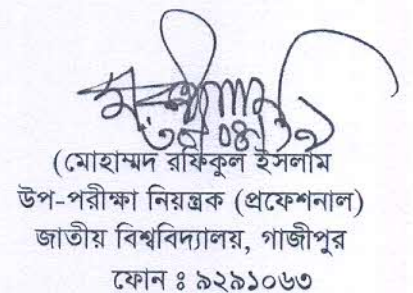 (মোহাম্মদ রফিকুল ইসলাম
উপ-পরীক্ষা নিয়ন্ত্রক (প্রফেশনাল)
জাতীয় বিশ্ববিদ্যালয়, গাজীপুর
ফোন ঃ ৯২৯১০৬৩